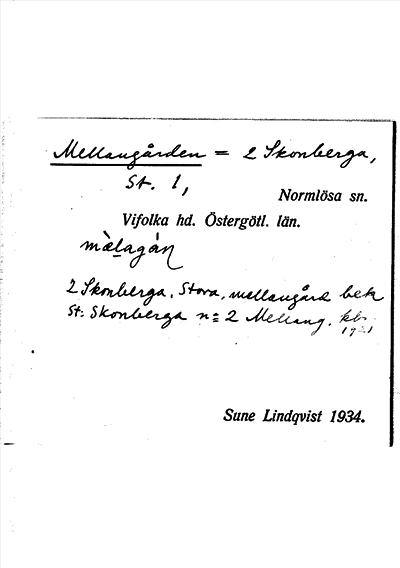 Mellangården = 2 Skonberga,
St. 1,
Normlösa sn.
Vifolka hd. Östergötl. län.
mälagån
2 Skonberga, Stora, mellangård bek
St. Skonberga n= 2 Mellang. kb.
1921
Sune Lindqvist 1934.